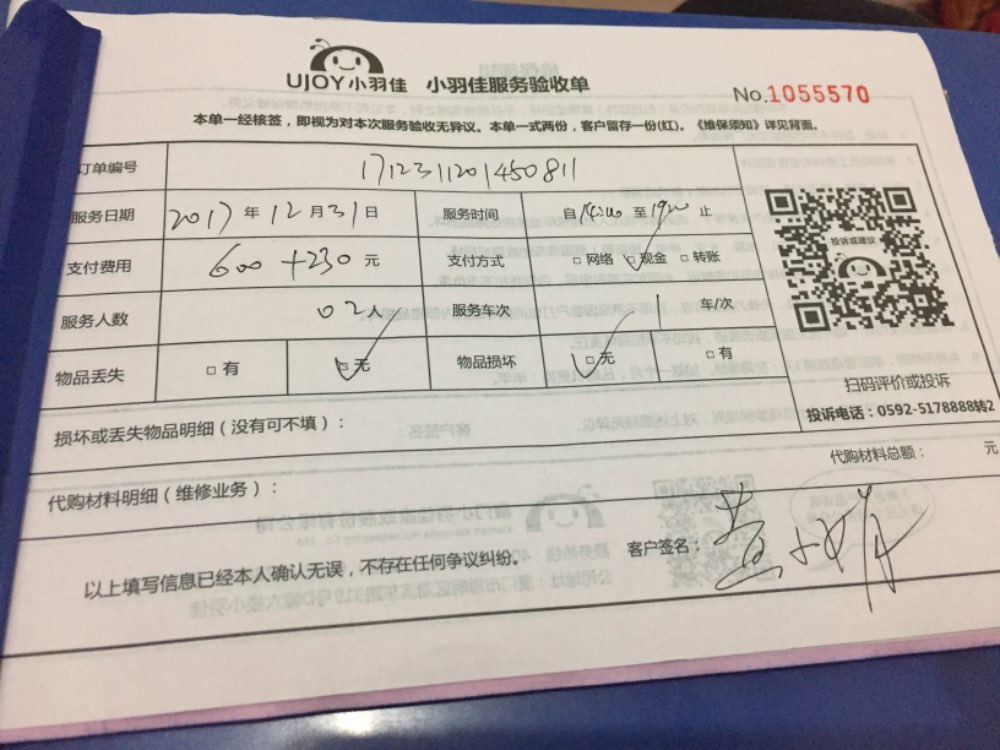 UJOY小羽佳 小羽佳服务验收单
No.1055570
本单一经核签，即视为对本次服务验收无异议。本单一式两份，客户留存一份(红)。《维保须知》详见背面。
订单编号 1712311201450811
服务日期 2017年12月31日 服务时间 自14:00至1920止
支付费用 600+230元 支付方式 □网络 □现金 □转账
服务人数 02人 服务车次 1 车/次
物品丢失 □有 □无 物品损坏 □无 □有
投诉或建议
扫码评价或投诉
投诉电话：0592-5178888转2
损坏或丢失物品明细（没有可不填）：
代购材料总额： 元
代购材料明细（维修业务）：
客户签名：
以上填写信息已经本人确认无误，不存在任何争议纠纷。